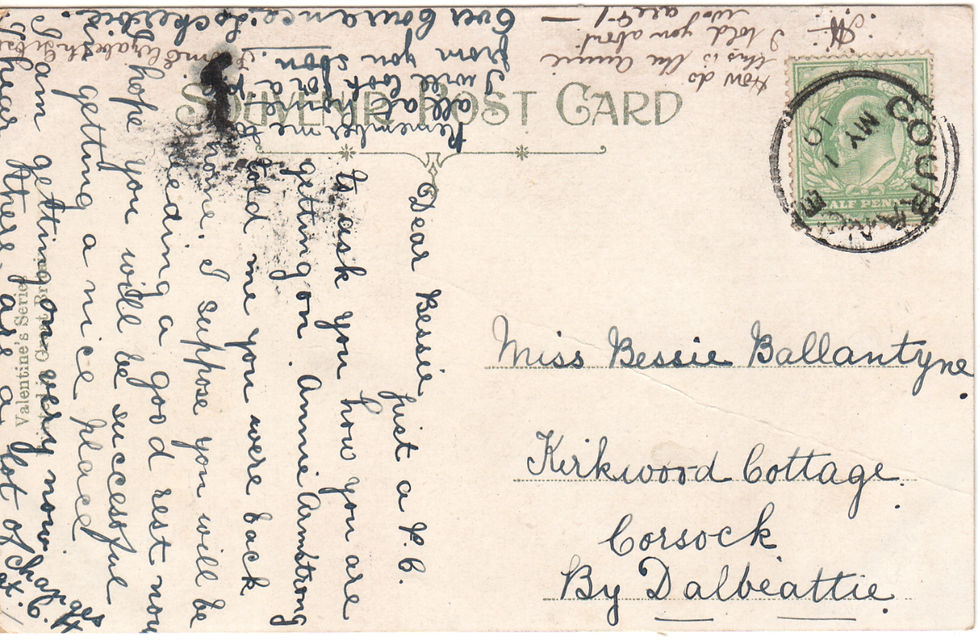 SOUVENIR POST CARD
HALF PENNY
COURANCE
MY 1
10
Miss Bessie Ballantyne
Kirkwood Cottage
Corsock
By Dalbeattie.
Dear Bessie
Just a P.C.
to ask you how you are
getting on. Annie Armstrong
told me you were back
home. I suppose you will be
needing a good rest now
hope you will be successful
in getting a nice place
am getting on very now
there are a lot of changes
Remember me
to all at home
I will look for a P.C.
from you soon
Over Courance
Lockerbie
How do
this is the Annie
I told you about
Valentine's Series